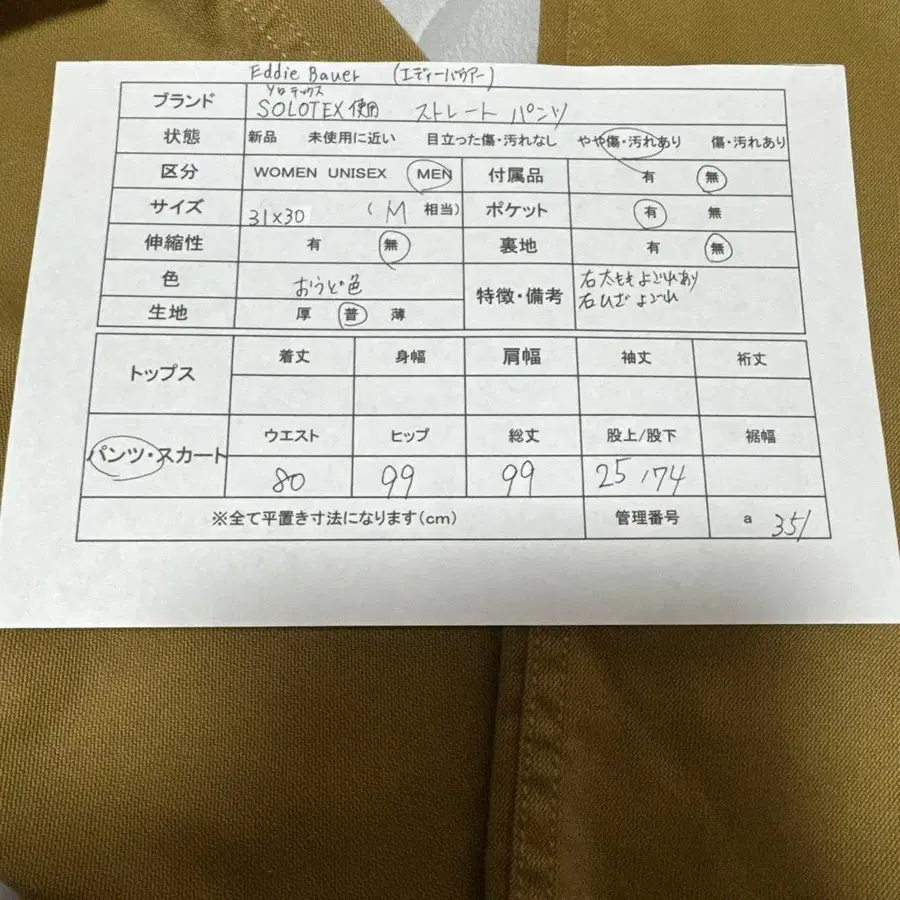 Eddie Bauer (エディーバウアー)
ソロテックス
ブランド SOLOTEX使用 ストレート パンツ
状態 新品 未使用に近い 目立った傷・汚れなし やや傷・汚れあり 傷・汚れあり
区分 WOMEN UNISEX MEN 付属品 有 無
サイズ 31×30 ( M 相当) ポケット 有 無
伸縮性 有 無 裏地 有 無
色 おうど色 特徴・備考 右太ももよごれあり
右ひざよごれ
生地 厚 普 薄
トップス 着丈 身幅 肩幅 袖丈 裄丈
パンツ・スカート ウエスト ヒップ 総丈 股上/股下 裾幅
80 99 99 25/74
※全て平置き寸法になります(cm) 管理番号 a 351